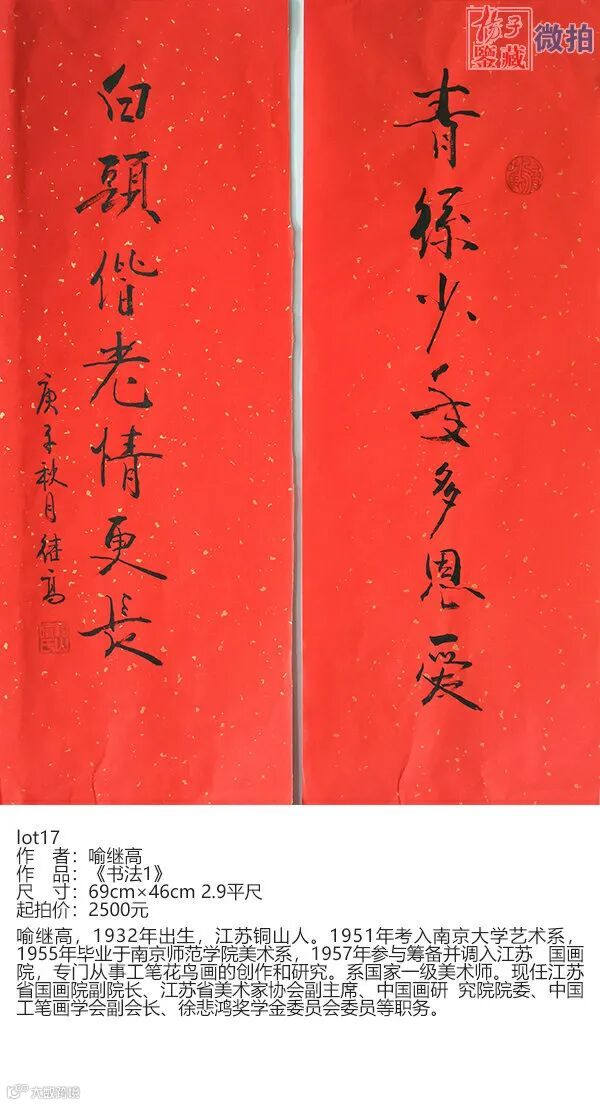 扬子
鉴藏 微拍
青絲少多恩愛
白頭偕老情更長
庚子秋月 继高
lot17
作 者：喻继高
作 品：《书法1》
尺 寸：69cm×46cm 2.9平尺
起拍价：2500元
喻继高，1932年出生，江苏铜山人。1951年考入南京大学艺术系，
1955年毕业于南京师范学院美术系，1957年参与筹备并调入江苏 国画
院，专门从事工笔花鸟画的创作和研究。系国家一级美术师。现任江苏
省国画院副院长、江苏省美术家协会副主席、中国画研 究院院委、中国
工笔画学会副会长、徐悲鸿奖学金委员会委员等职务。
大数跨境